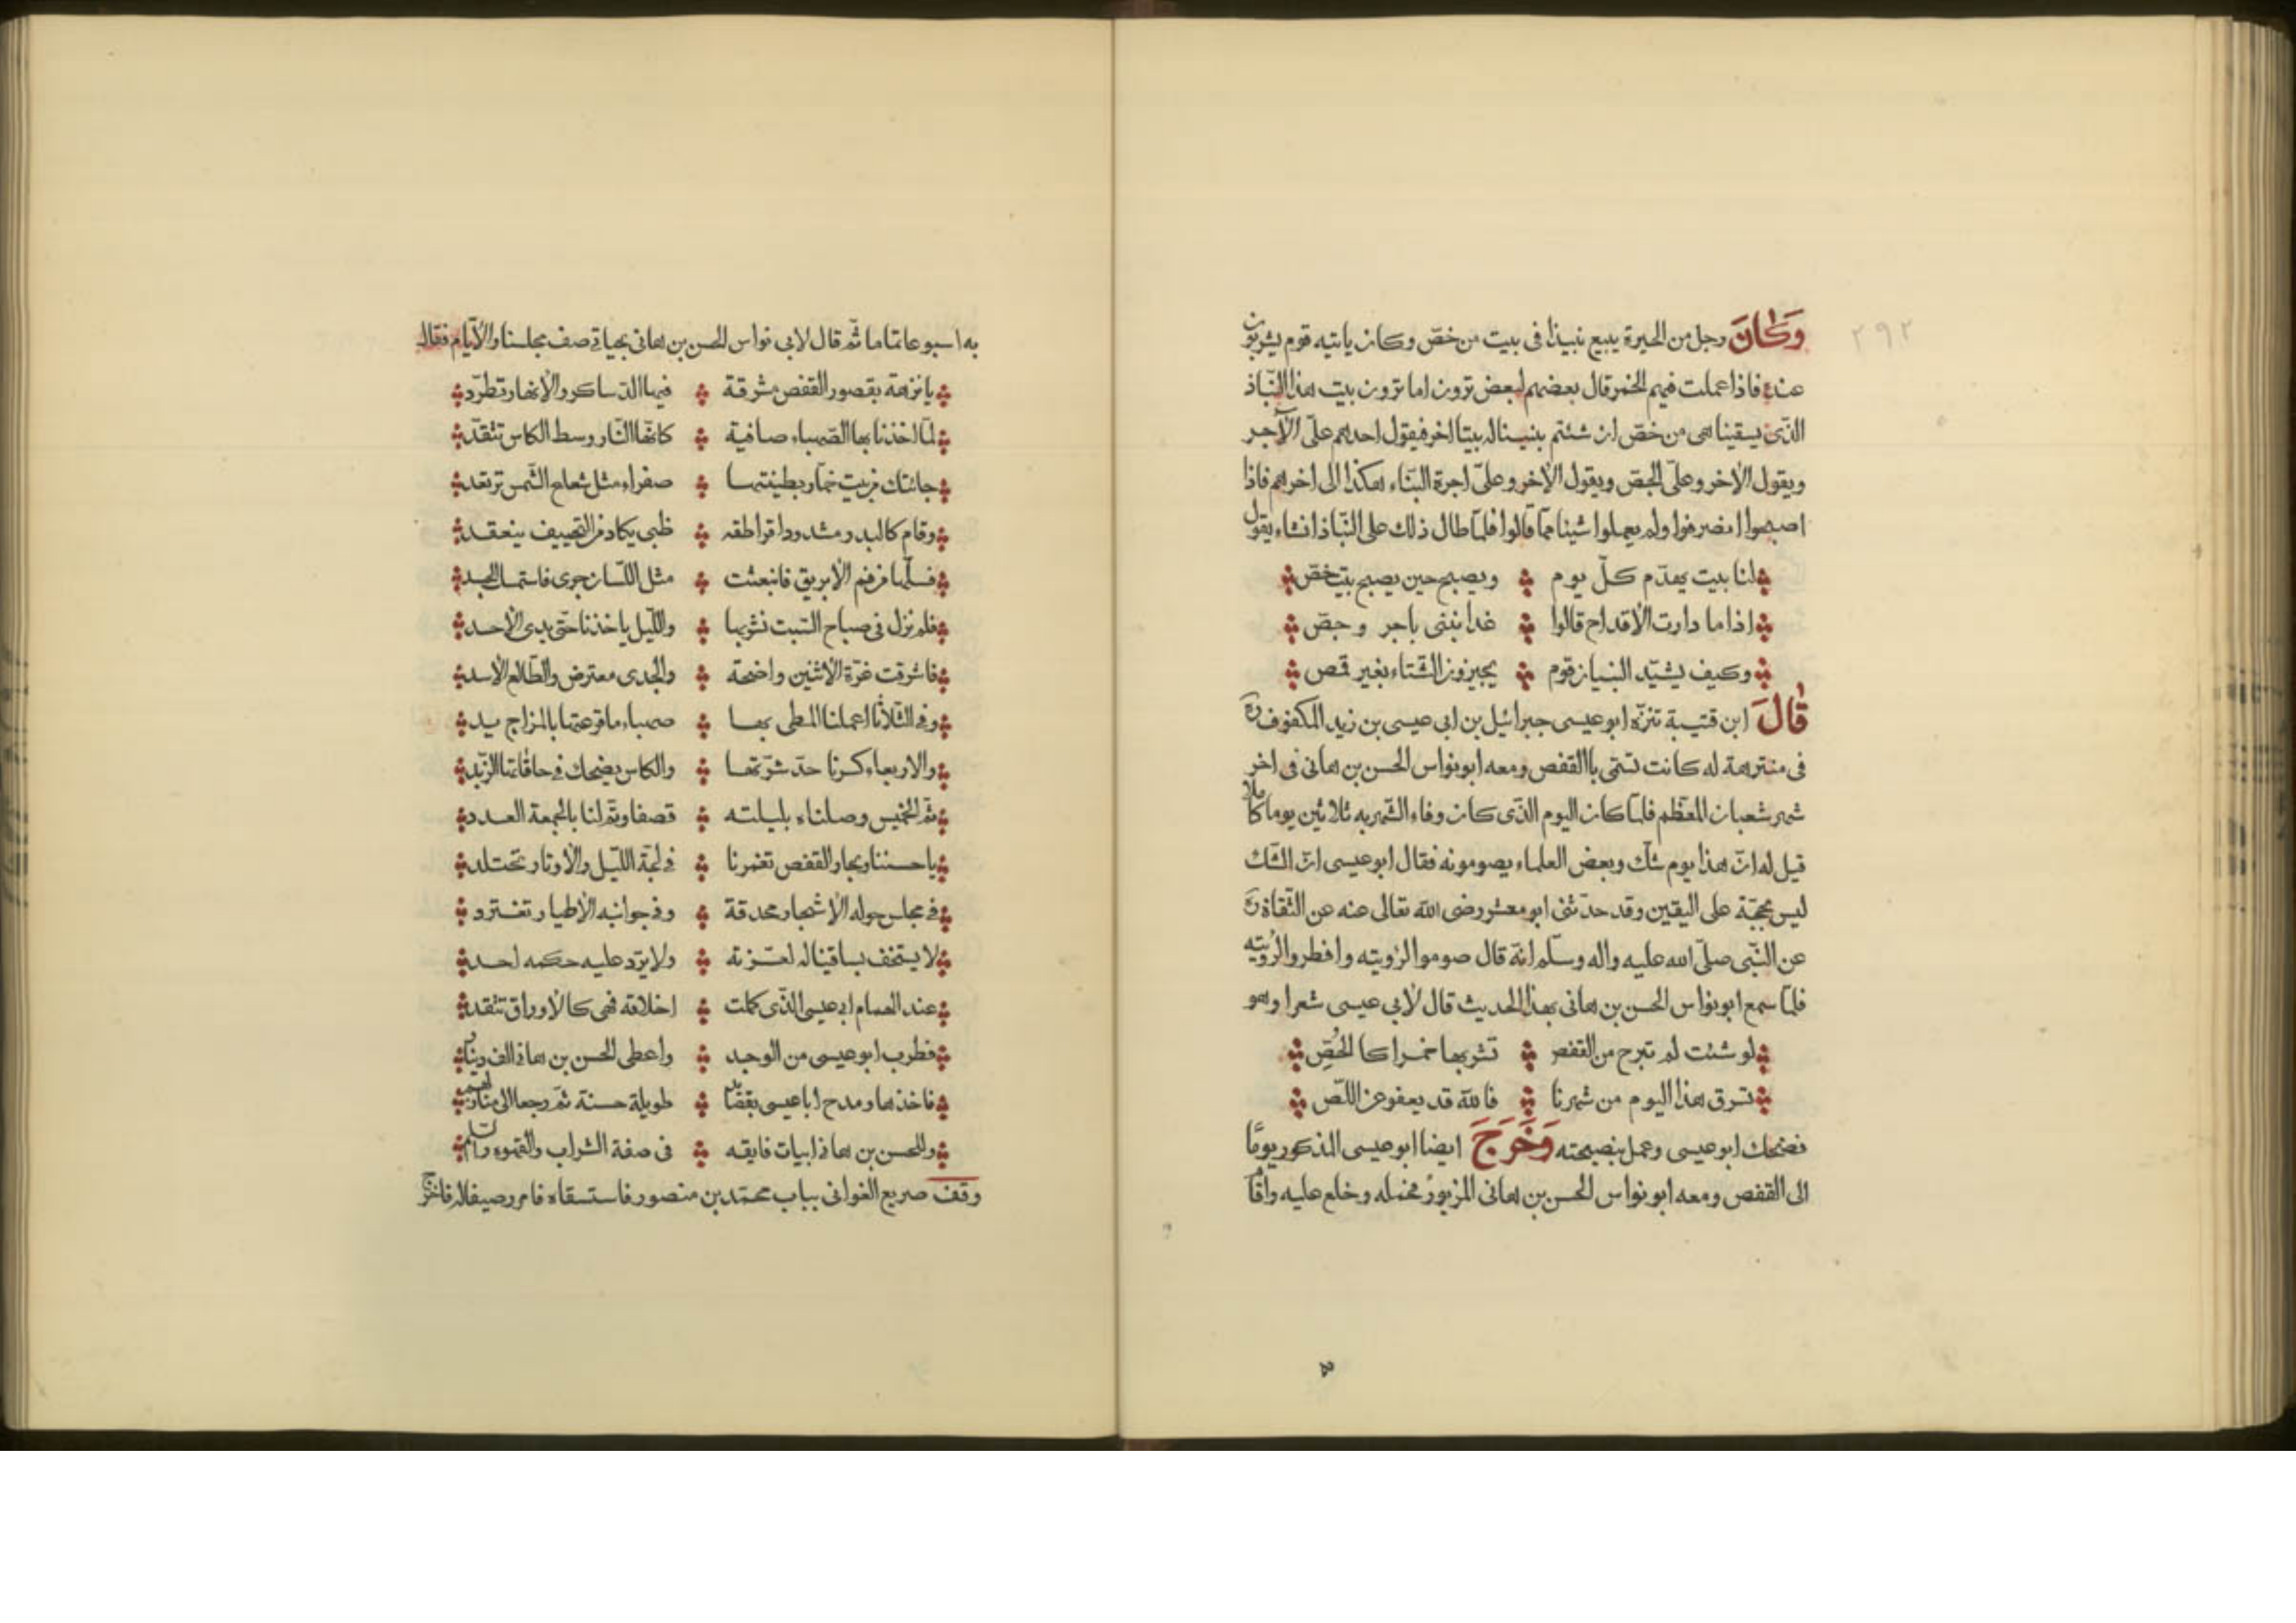 ٢٩٢
وَكَانَ رجل من الحيرة يبيع نبيذا فى بيت من خصّ وكان ياتيه قوم يشربون
عنده فاذا عملت فيهم الخمر قال بعضهم لبعض ترون اما ترون بيت هذا النّباذ
الذّى يسقينا هى من خصّ ان شئتم بنينا له بيتا اخر فيقول احدهم علىّ الآجر
ويقول الاخر وعلىّ الجصّ ويقول الاخر وعلىّ اجرة البنّاء هكذا الى اخرهم فاذا
اصبحوا انصرفوا ولم يعملوا شيئا ممّا قالوا فلمّا طال ذلك على النّباذ انشاء يقول
لنا بيت يهدّم كلّ يوم ويصبح حين يصبح بيت خصّ
اذا ما دارت الاقداح قالوا غدا نبنى باجر وجصّ
وكيف يشيّد البنيان قوم يجيزون الشّتاء بغير قمص
قَالَ ابن قتيبة تنزّه ابو عيسى جبرائيل بن ابى عيسى بن زيد المكفوف
فى منتزهة له كانت تسمّى باالقفص ومعه ابو نواس الحسن بن هانى فى اخر
شهر شعبان المعظّم فلمّا كان اليوم الذّى كان وفاء الشّهر به ثلاثين يوما كاملا
قيل له انّ هذا يوم شكّ وبعض العلماء يصومونه فقال ابو عيسى انّ الشّك
ليس بحجّة على اليقين وقد حدّثنى ابو معشر رضى الله تعالى عنه عن الثّقاة
عن النّبى صلّى الله عليه واله وسلّم انّه قال صوموا لرؤيته وافطروا لرؤيته
فلمّا سمع ابو نواس الحسن بن هانى بهذا الحديث قال لابى عيسى شعرا وهو
لو شئت لم تبرح من القفص تشربها خمرا كا الحُصّ
تسرق هذا اليوم من شهرنا فالله قد يعفو عن اللّصّ
فضحك ابو عيسى وعمل بنصيحته وَخَرَجَ ايضا ابو عيسى المذكور يومًا
الى القفص ومعه ابو نواس الحسن بن هانى المزبور فحمله وخلع عليه واقا
به اسبوعا تاما ثمّ قال لابى نواس الحسن بن هانى بحياتى صف مجلسنا والايّام فقال
يا نزهة بقصور القفص مشرقة فيها الدّساكر والانهار تطّرد
لمّا اخذنا بها الصّهباء صافية كانّها النّار وسط الكاس تتّقد
جائتك من بيت خمّار بطينتها صفراء مثل شعاع الشّمس ترتعد
وقام كالبدر مشدودا قراطقه ظبى يكاد من التّهييف ينعقد
فسلّها من فم الابريق فانبعثت مثل اللّسان جرى فاستمسك الجسد
فلم نزل فى صباح السّبت نشربها واللّيل ياخذنا حتّى بدى الاحد
فاشرقت غرّة الاثنين واضحة والجدى معترض والطّالع الاسد
وفى الثّلاثا اعملنا المطى بها صهباء ما قرعتها بالمزاج يد
والاربعاء كسرنا حدّ شرّتها والكاس يضحك فى حافاتها الزّبد
ثمّ الخميس وصلناه بليلته قصفا وتمّ لنا بالجمعة العدد
يا حسننا وبحار القفص تغمرنا فى لجّة اللّيل والاوتار
فى مجلس حوله الاشجار محدقة وفى جوانبه الاطيار تغترد
لا يستخف بساقينا لعزته ولا يردّ عليه حكمه احد
عند الهمام ابى عيسى الذّى كملت اخلاقه فهى كا الاوراق تنتقد
فطرب ابو عيسى من الوجد واعطى الحسن بن هانى الف دينار
فاخذها ومدح ابا عيسى بقصايد طويلة حسنة ثمّ رجعا الى منازلهم
وللحسن بن هانى ابيات فايقه فى صفة الشراب والقهوه
وقف صريع الغوانى بباب محمّد بن منصور فاستسقاه فامر وصيفا له فاخرج